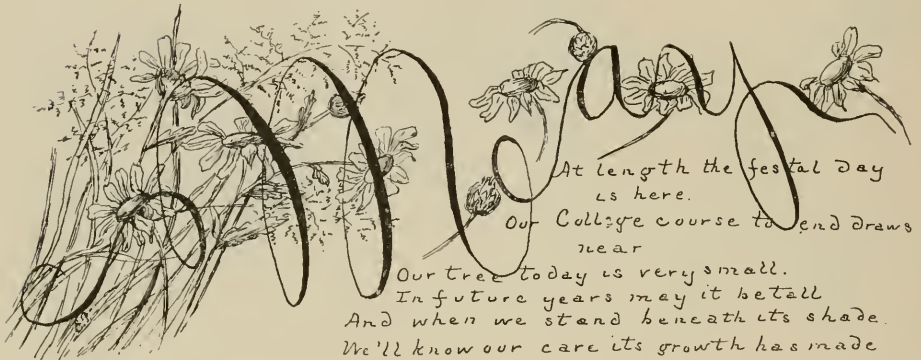 May
At length the festal day
is here.
Our College course to end draws
near
Our tree today is very small.
In future years may it be tall
And when we stand beneath its shade.
We'll know our care its growth has made